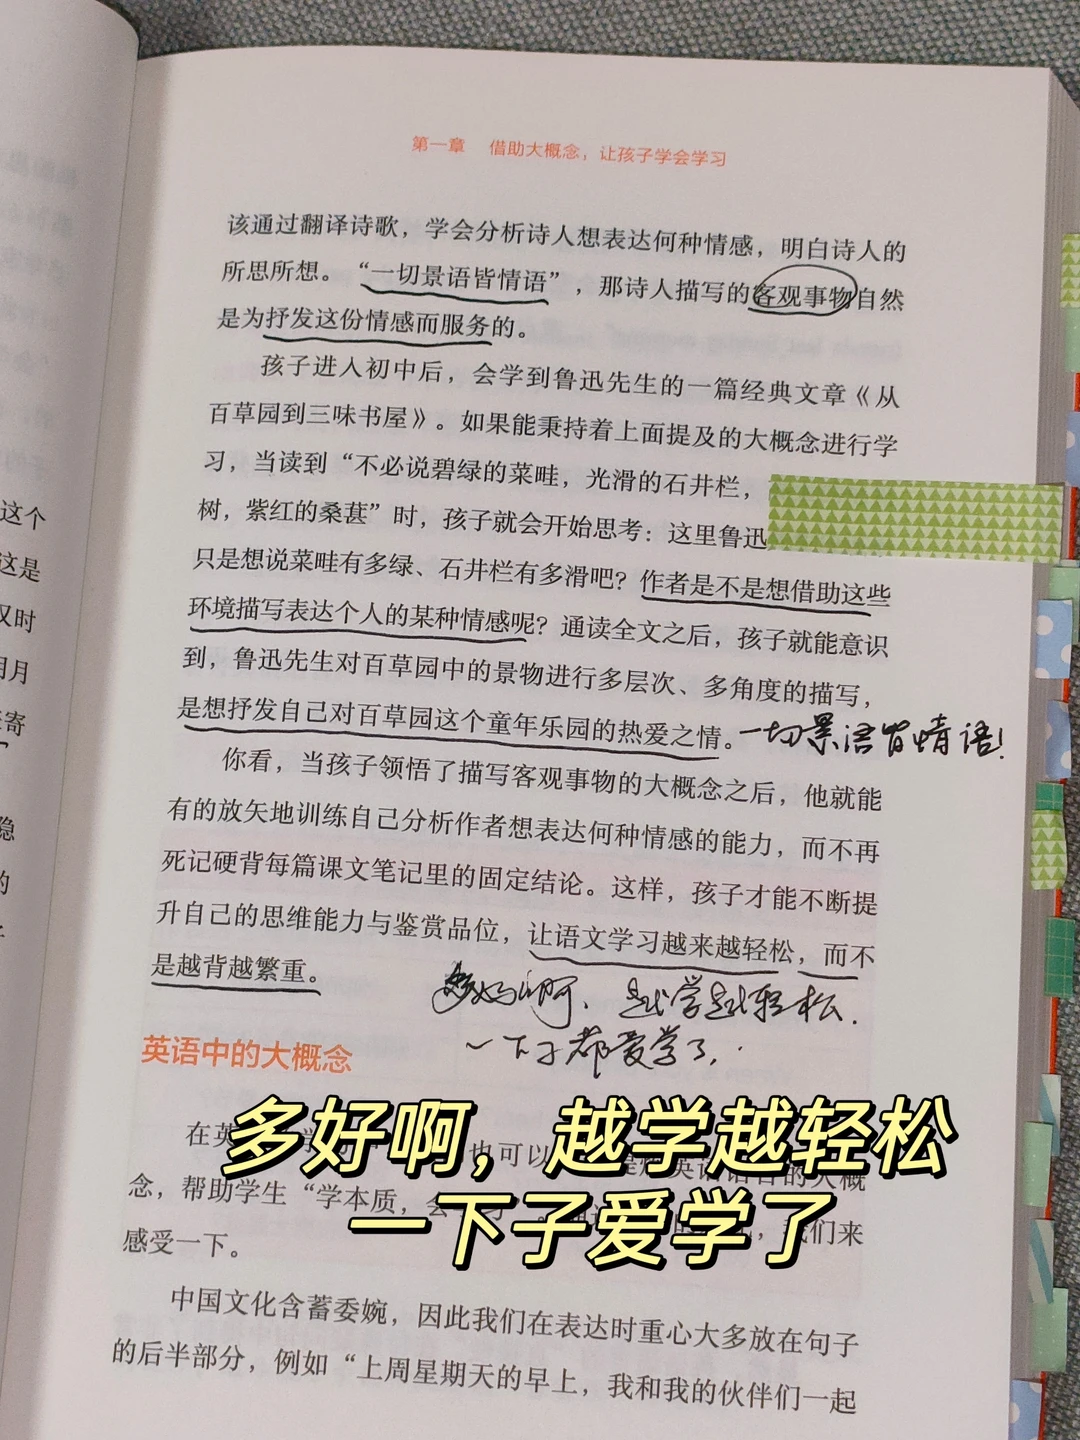 第一章 借助大概念，让孩子学会学习
该通过翻译诗歌，学会分析诗人想表达何种情感，明白诗人的
所思所想。“一切景语皆情语”，那诗人描写的客观事物自然
是为抒发这份情感而服务的。
孩子进入初中后，会学到鲁迅先生的一篇经典文章《从
百草园到三味书屋》。如果能秉持着上面提及的大概念进行学
习，当读到“不必说碧绿的菜畦，光滑的石井栏，
树，紫红的桑葚”时，孩子就会开始思考：这里鲁迅
只是想说菜畦有多绿、石井栏有多滑吧？作者是不是想借助这些
环境描写表达个人的某种情感呢？通读全文之后，孩子就能意识
到，鲁迅先生对百草园中的景物进行多层次、多角度的描写，
是想抒发自己对百草园这个童年乐园的热爱之情。一切景语皆情语！
你看，当孩子领悟了描写客观事物的大概念之后，他就能
有的放矢地训练自己分析作者想表达何种情感的能力，而不再
死记硬背每篇课文笔记里的固定结论。这样，孩子才能不断提
升自己的思维能力与鉴赏品位，让语文学习越来越轻松，而不
是越背越繁重。
多好啊，越学越轻松.
一下子都爱学了.
英语中的大概念
多好啊，越学越轻松
一下子爱学了
在英 也可以 英语语言的大概
念，帮助学生“学本质，会 ，我们来
感受一下。
中国文化含蓄委婉，因此我们在表达时重心大多放在句子
的后半部分，例如“上周星期天的早上，我和我的伙伴们一起
这个
这是
汉时
明月
寄
隐
的